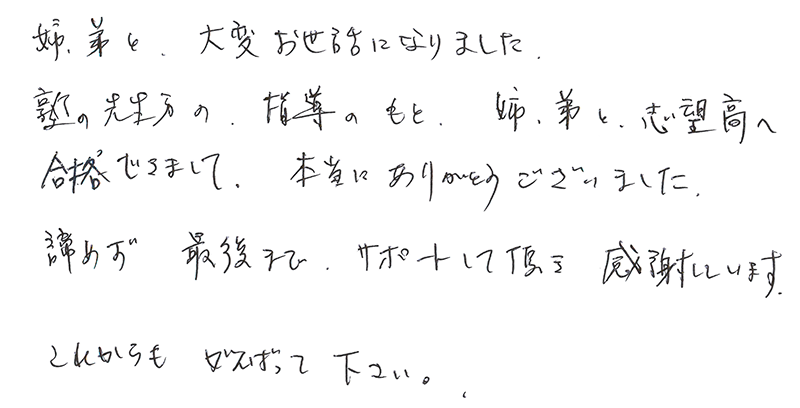 姉、弟と、大変お世話になりました。
塾の先生方の、指導のもと、姉、弟と、志望高へ
合格できまして、本当にありがとうございました。
諦めず最後まで、サポートして頂き感謝しています。
これからもがんばって下さい。